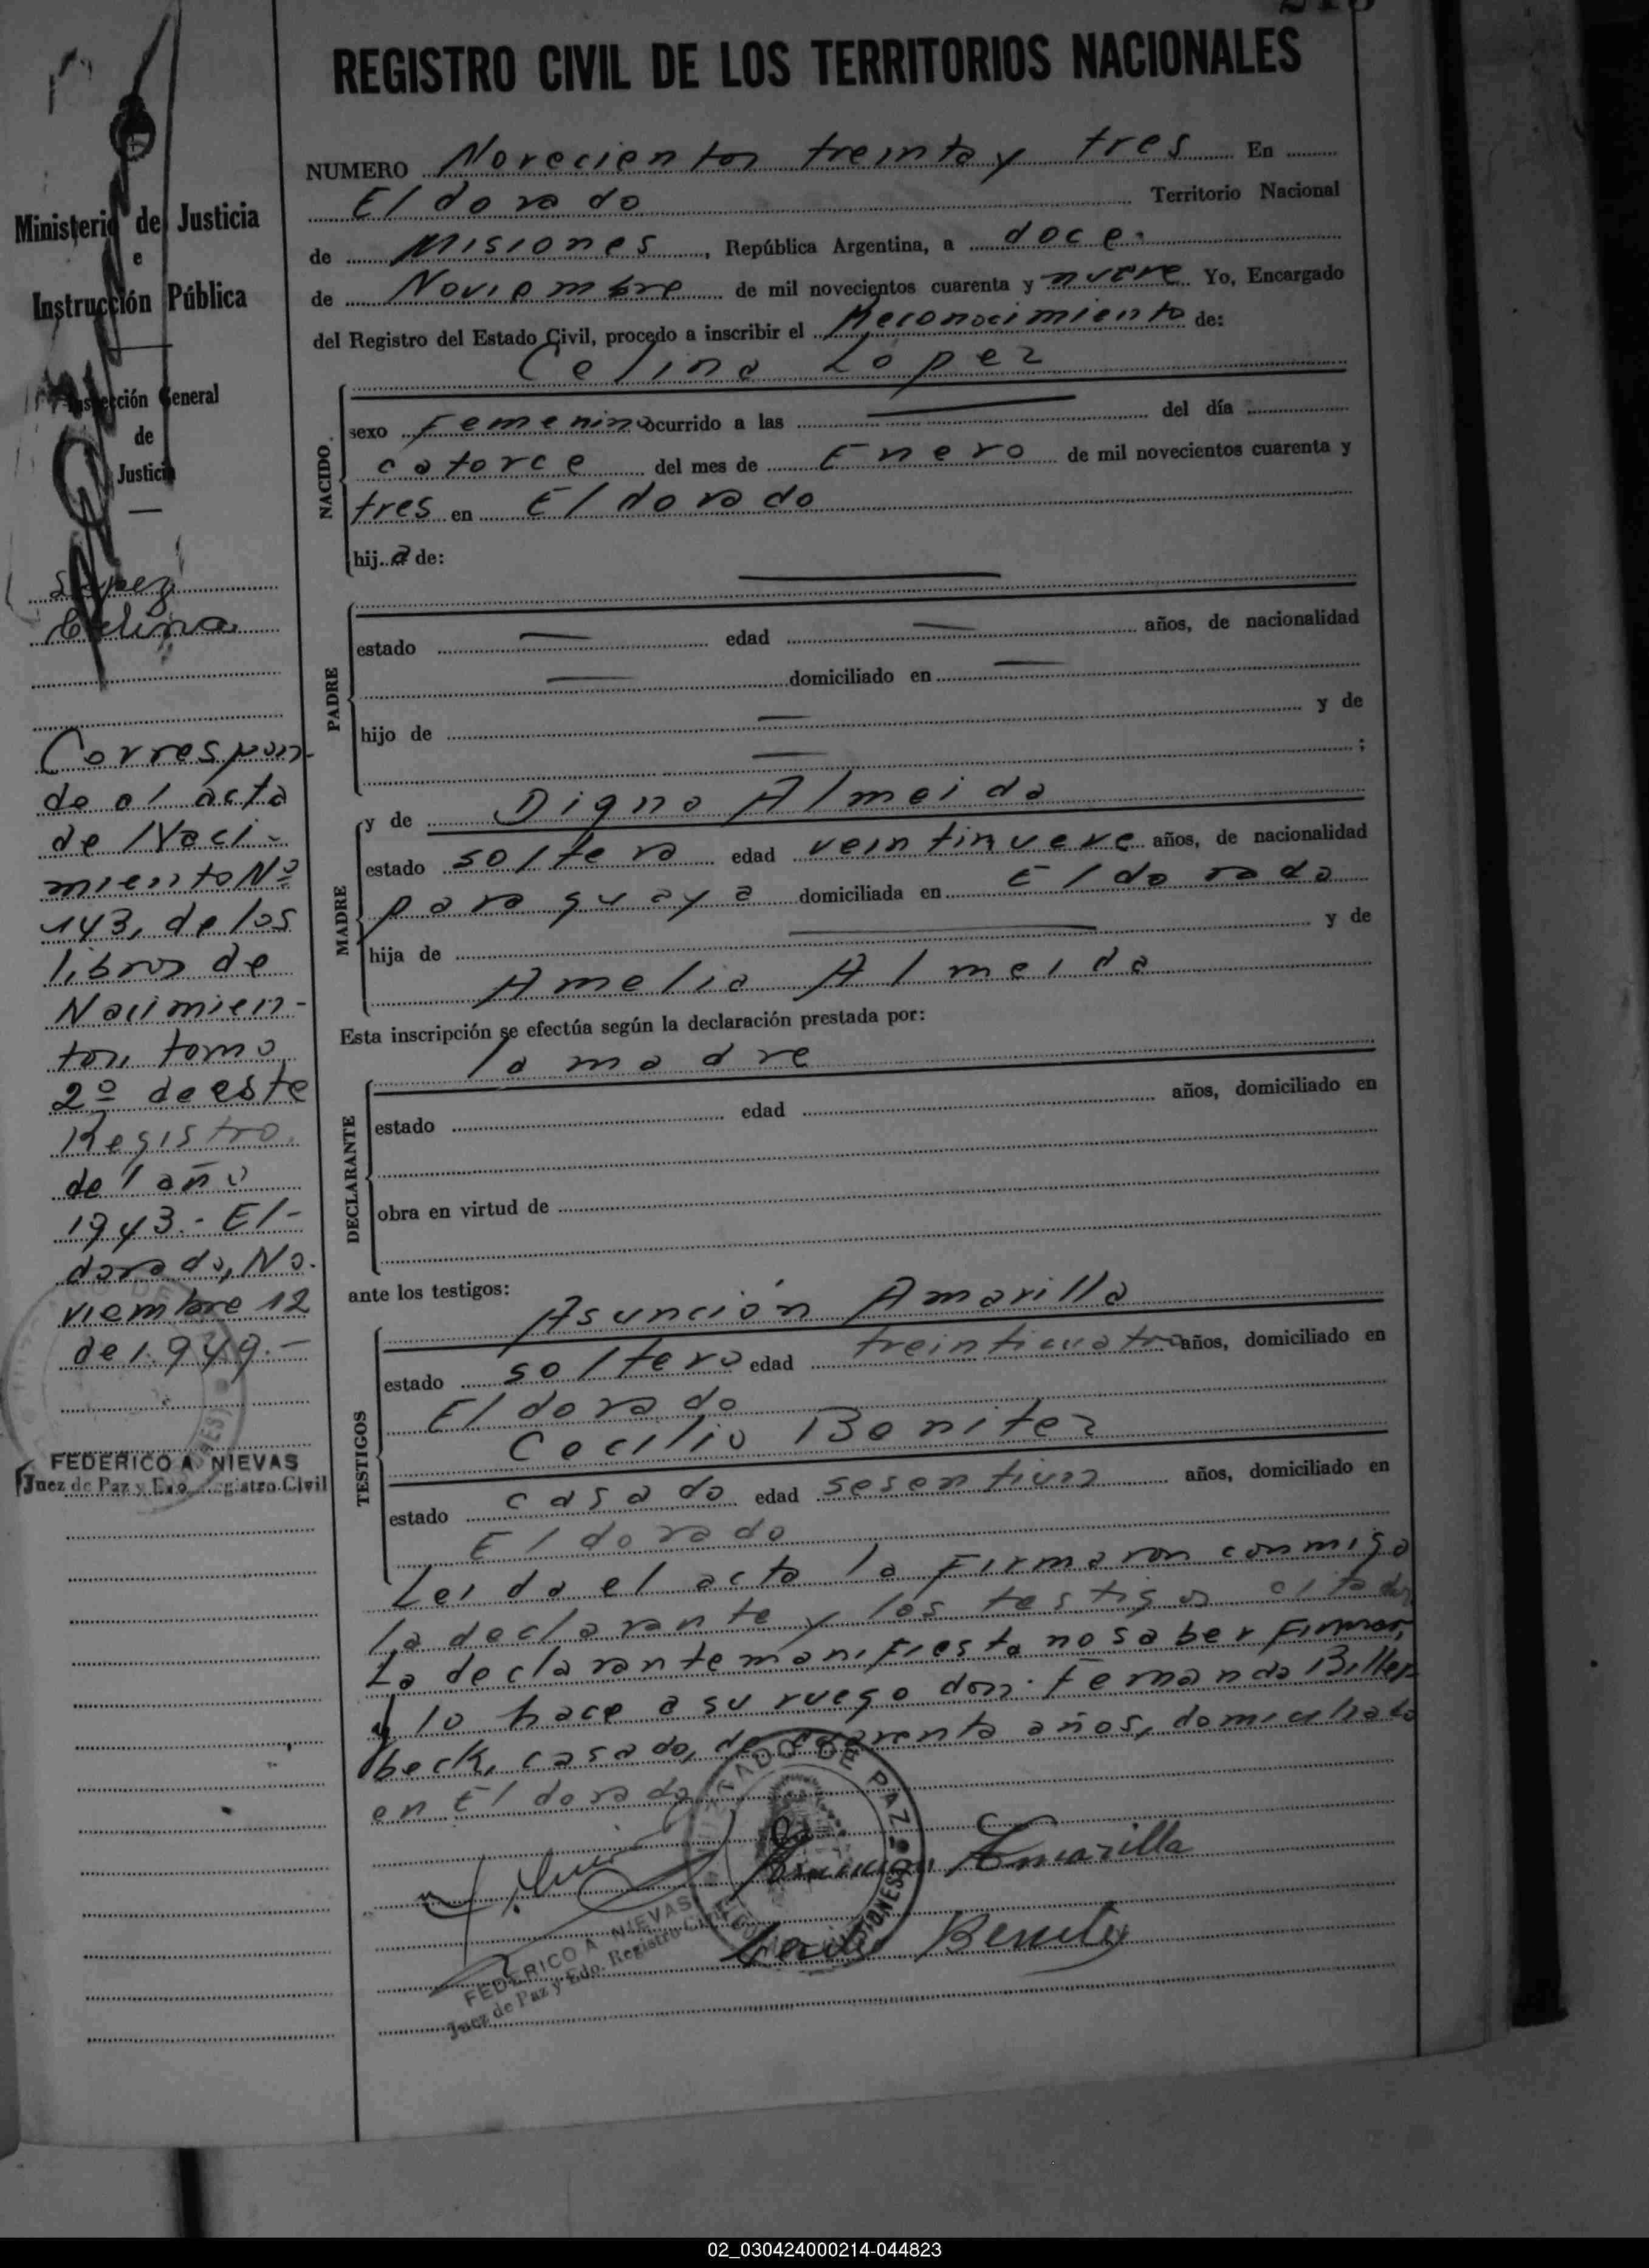 REGISTRO CIVIL DE LOS TERRITORIOS NACIONALES
Ministerio de Justicia
e
Instrucción Pública
Inspección General
de
Justicia
Lopez
Celina
Correspon-
de al acta
de Naci-
miento Nº
143, de los
libros de
Nacimien-
tos, tomo
2º de este
Registro.
del año
1943.- El-
dorado, No-
viembre 12
de 1.949.-
FEDERICO A. NIEVAS
Juez de Paz y Edo. Registro Civil
NUMERO Novecientos treinta y tres En
Eldorado Territorio Nacional
de Misiones, República Argentina, a doce
de Noviembre de mil novecientos cuarenta y nueve Yo, Encargado
del Registro del Estado Civil, procedo a inscribir el Reconocimiento de:
Celina Lopez
NACIDO
sexo Femenino ocurrido a las del día
catorce del mes de Enero de mil novecientos cuarenta y
tres en Eldorado
hija de:
PADRE
estado edad años, de nacionalidad
domiciliado en
hijo de y de
;
MADRE
y de Digna Almeida
estado soltera edad veintinueve años, de nacionalidad
paraguaya domiciliada en Eldorado
hija de y de
Amelia Almeida
Esta inscripción se efectúa según la declaración prestada por:
la madre
DECLARANTE
estado edad años, domiciliado en
obra en virtud de
ante los testigos:
TESTIGOS
Asunción Amarilla
estado soltero edad treinticuatro años, domiciliado en
Eldorado
Cecilio Benitez
estado casado edad sesentiun años, domiciliado en
Eldorado
Leida el acta la Firmaron conmigo
la declarante y los testigos citados
La declarante manifiesta no saber Firmar,
y lo hace a su ruego don Fernando Biller
beck, casado, de cuarenta años, domiciliado
en Eldorado
JUZGADO DE PAZ
Asuncion Amarilla
Cecilio Benitez
FEDERICO A. NIEVAS
Juez de Paz y Edo. Registro Civil
02_030424000214-044823